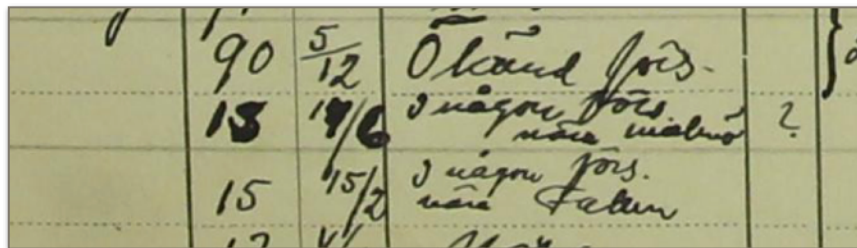 90 5/12 Okänd förs.
13 14/6 I någon förs. nära Malmö ?
15 15/2 I någon förs.
nära Falun